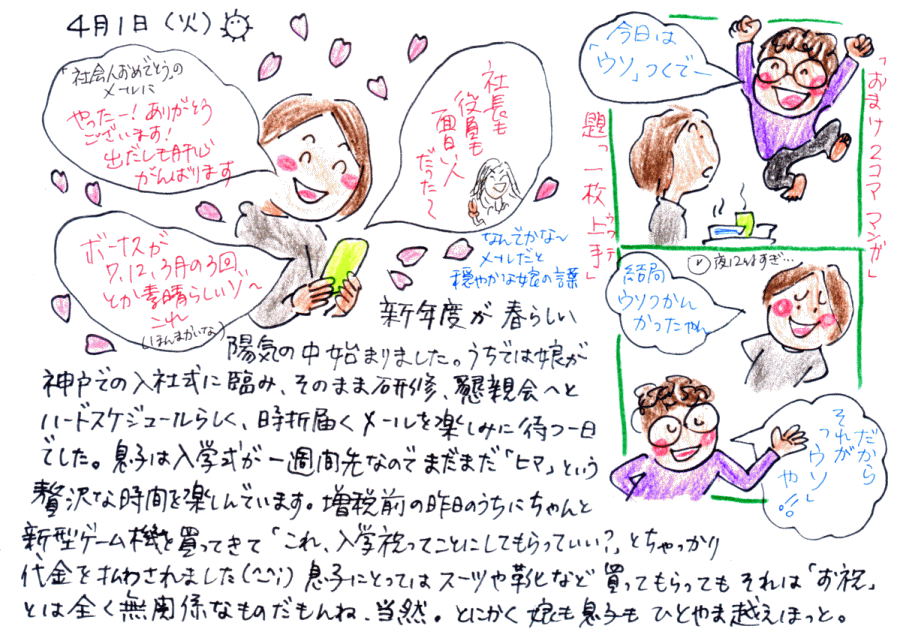 4月1日(火)
「社会人おめでとう」の
メールに
やったー!ありがとう
ございます!
出だしも肝心
がんばります
社長も
役員も
面白い人
だった〜
ボーナスが
7,12,3月の3回
とか素晴らしいゾ〜
これ
(ほんまかいな)
なんでかな〜
メールだと
穏やかな娘の言葉
新年度が春らしい
陽気の中始まりました。うちでは娘が
神戸での入社式に臨み、そのまま研修、懇親会へと
ハードスケジュールらしく、時折届くメールを楽しみに待つ一日
でした。息子は入学式が一週間先なのでまだまだ「ヒマ」という
贅沢な時間を楽しんでいます。増税前の昨日のうちにちゃんと
新型ゲーム機を買ってきて「これ、入学祝ってことにしてもらっていい?」とちゃっかり
代金を払わされました(^-^;) 息子にとってはスーツや靴など買ってもらってもそれは「お祝」
とは全く無関係なものだもんね、当然。とにかく娘も息子もひとやま越えほっと。
「おまけ2コママンガ」
題「一枚上手」
ウワテ
今日は
「ウソ」つくでー
夜12時すぎ…
結局
ウソつかん
かったやん
だから
それが
「ウソ」
や!!